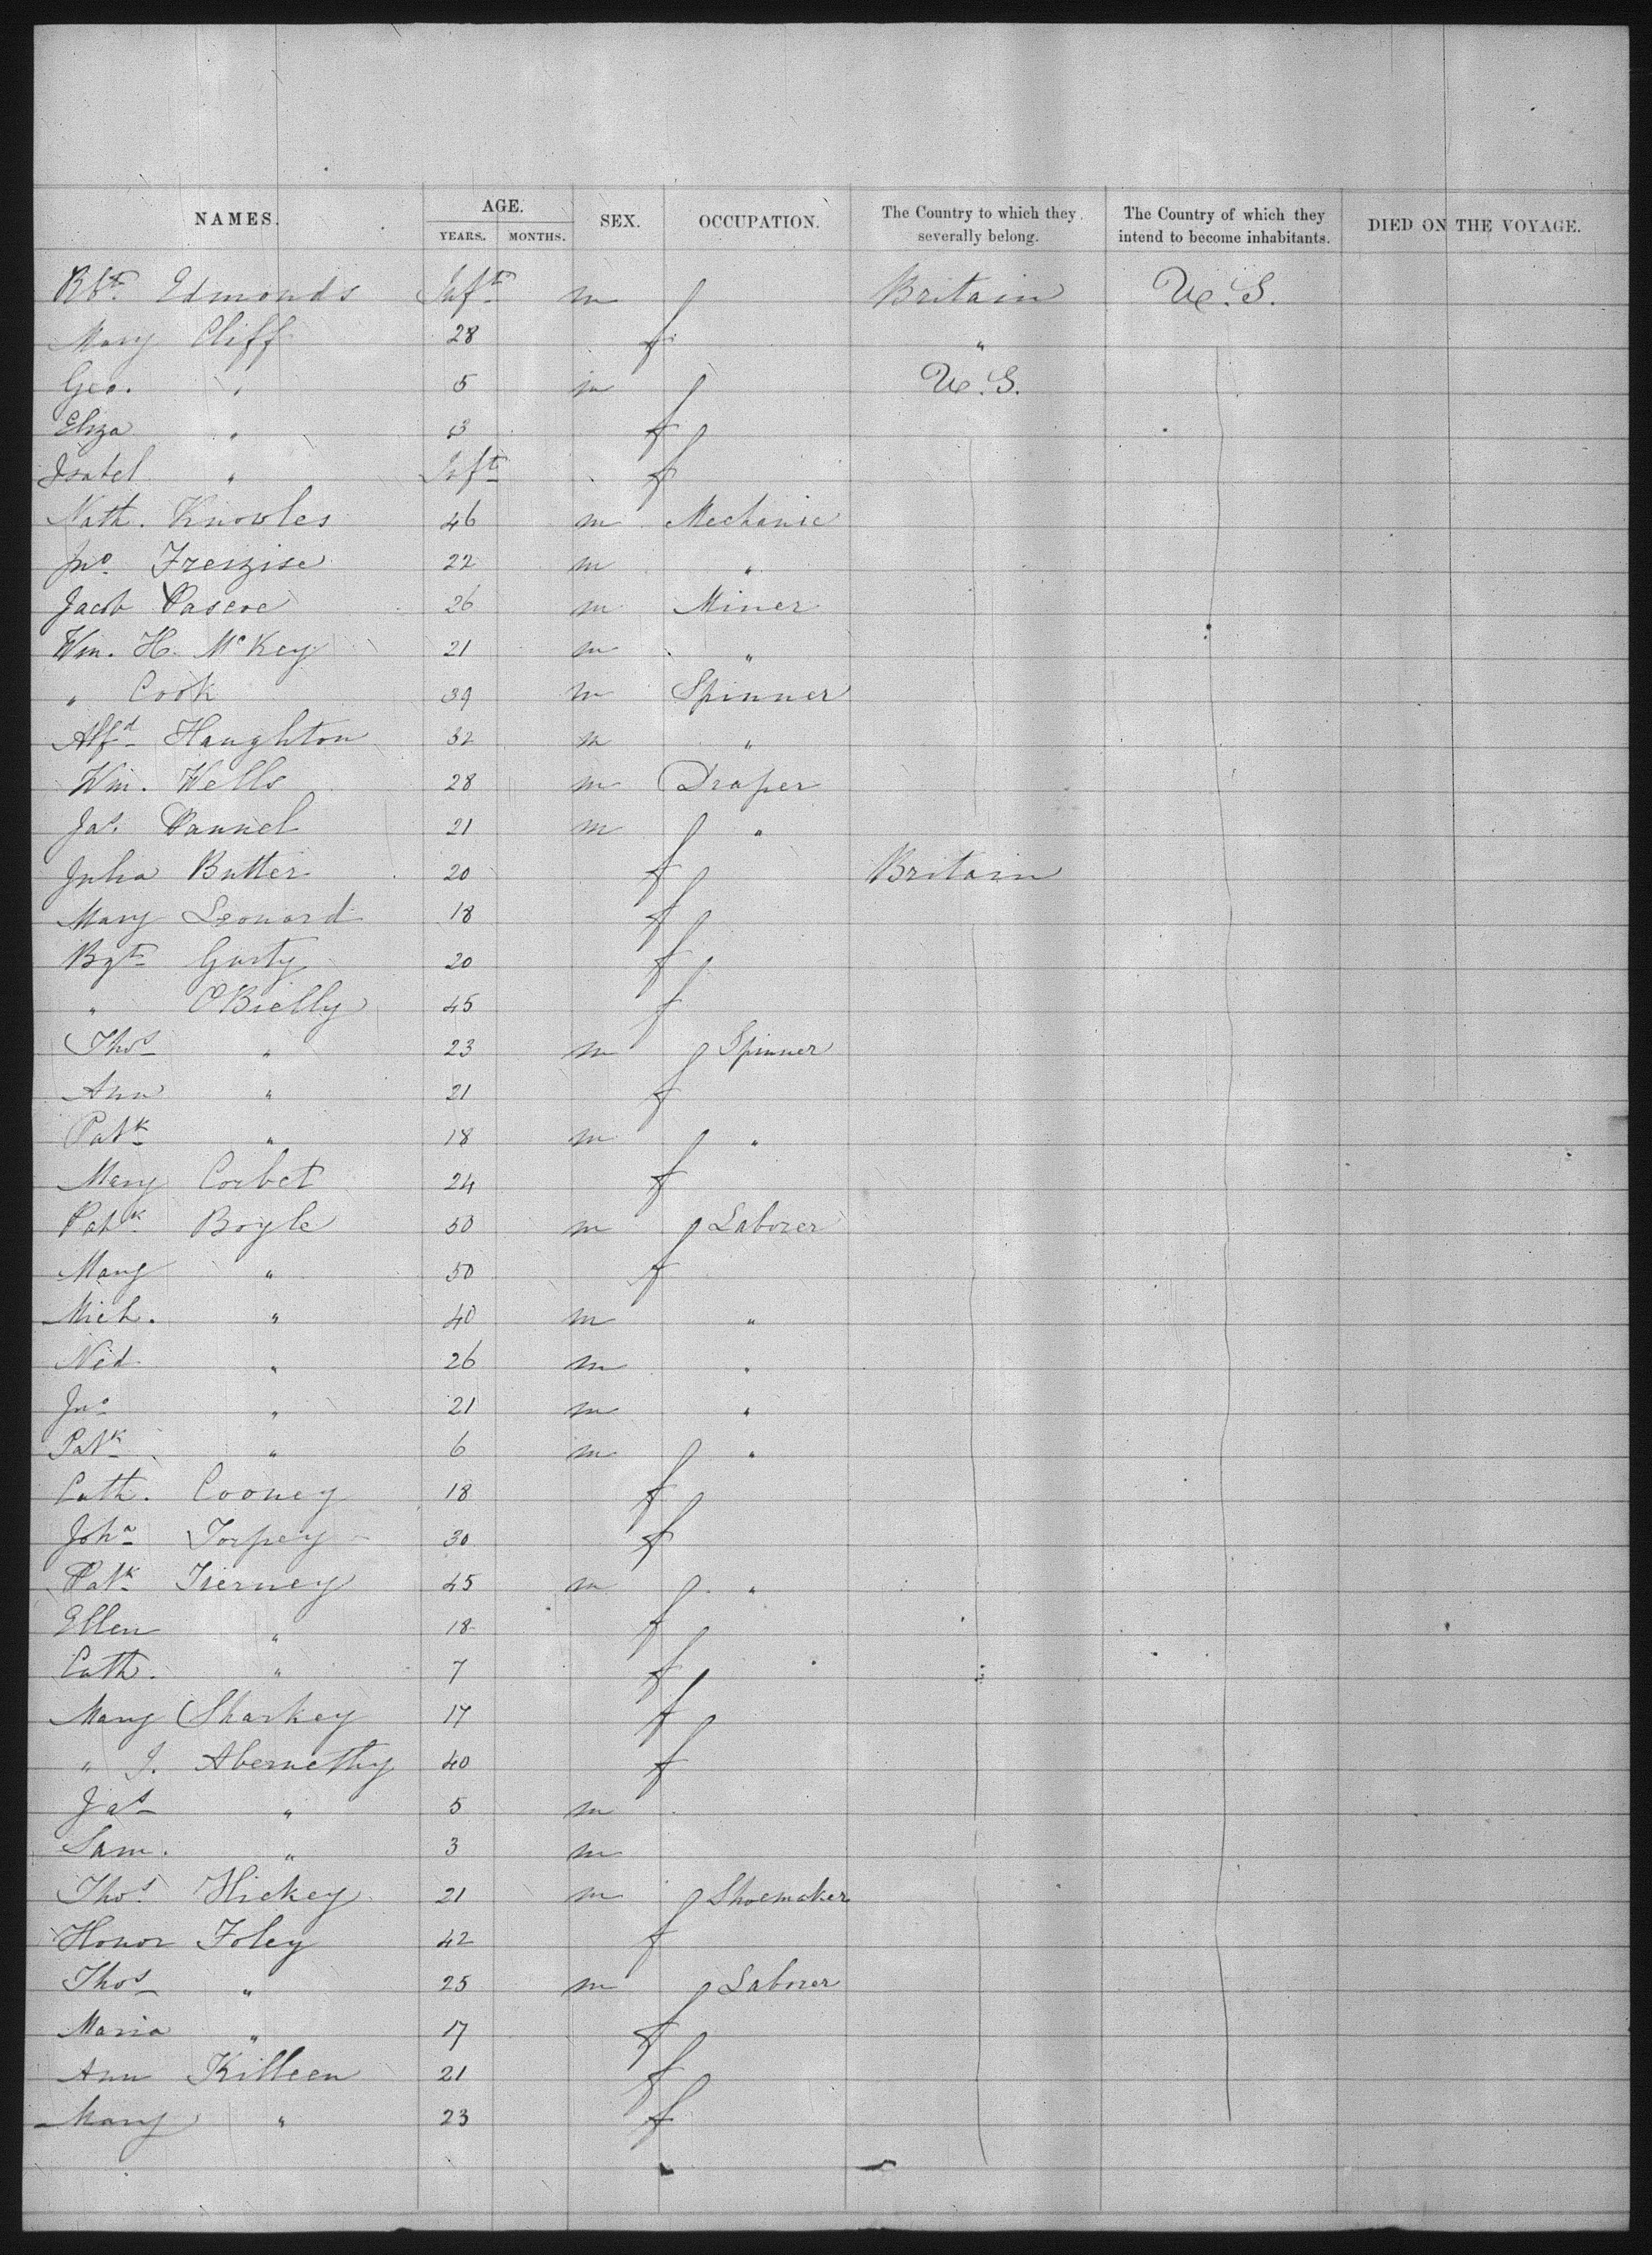 NAMES. AGE. SEX. OCCUPATION. The Country to which they severally belong. The Country of which they intend to become inhabitants. DIED ON THE VOYAGE.
YEARS. MONTHS.
Rbt. Edmonds Inft m Britain U.S.
Mary Cliff 28 f "
Geo. " 5 m U.S.
Eliza " 3 f
Isabel " Inft f
Nath. Knowles 46 m Mechanic
Jno Freszise 22 m "
Jacob Pascoe 26 m Miner
Wm. H. McKey 21 m "
" Cook 39 m Spinner
Alfd Haughton 32 m "
Wm. Wells 28 m Draper
Jas. Pannel 21 m "
Julia Butter 20 f Britain
Mary Leonard 18 f
Bgt Garty 20 f
" O'Bielly 45 f
Thos " 23 m Spinner
Ann " 21 f
Patk " 18 m "
Mary Corbet 24 f
Patk Boyle 50 m Laborer
Mary " 50 f
Mich. " 40 m "
Ned " 26 m "
Jno " 21 m "
Patk " 6 m "
Cath. Cooney 18 f
Joha Torpey 30 f
Patk Tierney 45 m "
Ellen " 18 f
Cath. " 7 f
Mary Sharkey 17 f
" J. Abernethy 40 f
Jas " 5 m
Sam. " 3 m
Thos Hickey 21 m Shoemaker
Honor Foley 42 f
Thos " 25 m Laborer
Maria " 17 f
Ann Killeen 21 f
Mary " 23 f